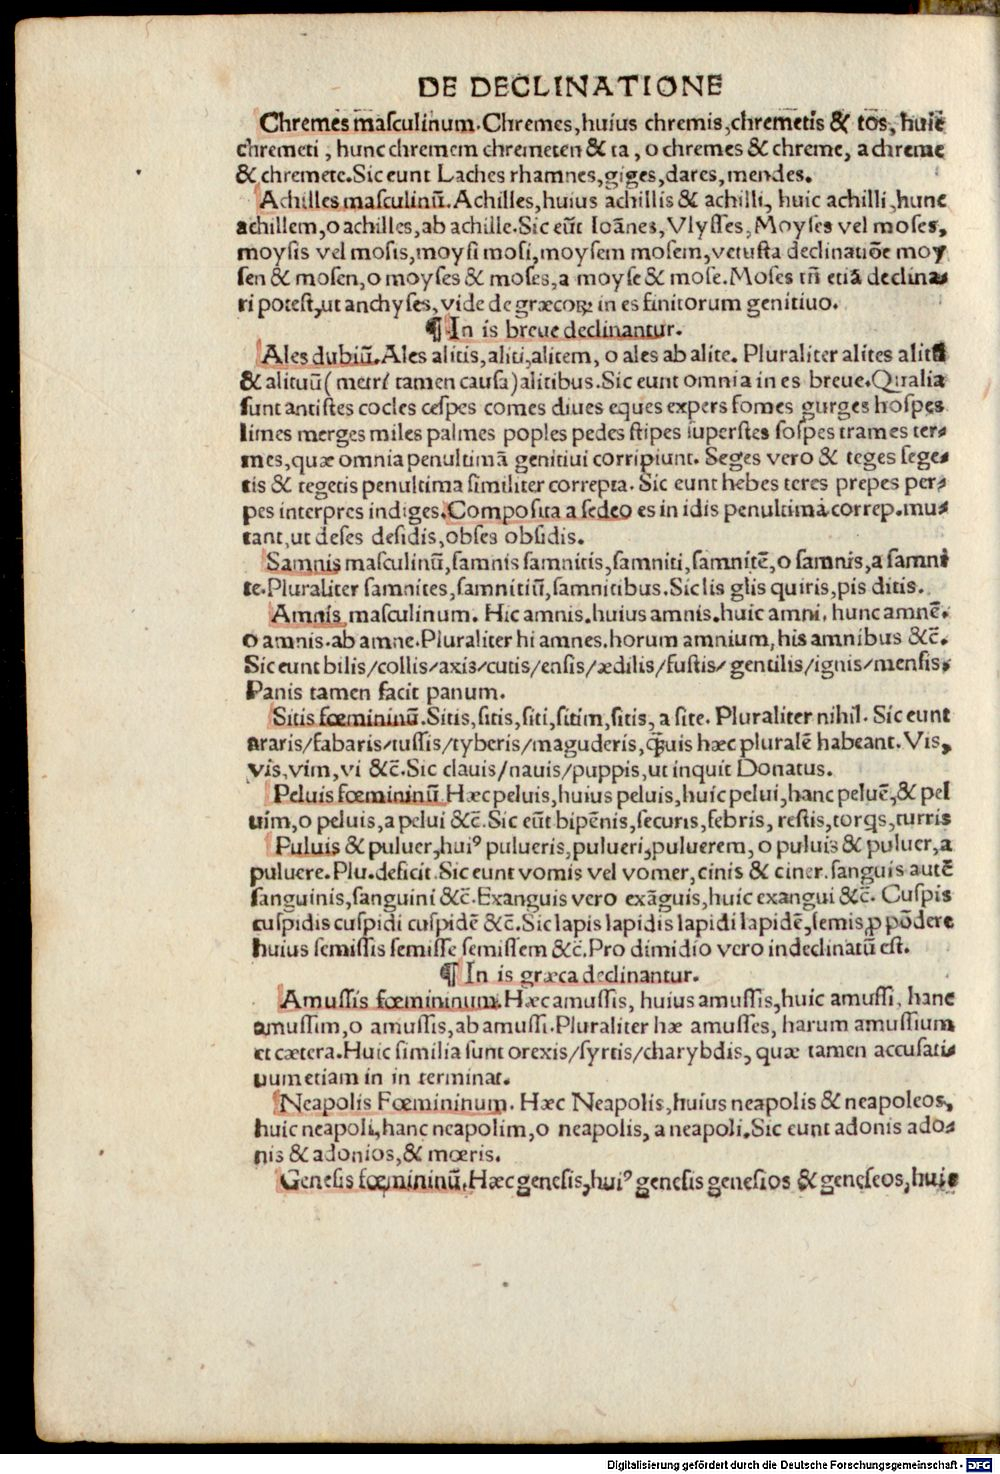 DE DECLINATIONE
Chremes masculinum. Chremes, huius chremis, chremetis & tōs, huic
chremeti, hunc chremem chremeten & ta, o chremes & chreme, a chreme
& chremete. Sic eunt Laches rhamnes, giges, dares, mendes.
Achilles masculinū. Achilles, huius achillis & achilli, huic achilli, hunc
achillem, o achilles, ab achille. Sic eūt Ioānes, Vlysses, Moyses vel moses,
moysis vel mosis, moysi mosi, moysem mosem, vetusta declinatiōe moy
sen & mosen, o moyses & moses, a moyse & mose. Moses tn̄ etiā declina⸗
ri potest, ut anchyses, vide de græcoꝝ in es finitorum genitiuo.
¶ In is breue declinantur.
Ales dubiū. Ales alitis, aliti, alitem, o ales ab alite. Pluraliter alites alitū
& alituū (metri tamen causa) alitibus. Sic eunt omnia in es breue. Qualia
sunt antistes cocles cespes comes diues eques expers fomes gurges hospes
limes merges miles palmes poples pedes stipes superstes sospes trames ter⸗
mes, quæ omnia penultimā genitiui corripiunt. Seges vero & teges sege⸗
tis & tegetis penultima similiter correpta. Sic eunt hebes teres prepes per⸗
pes interpres indiges. Composita a sedeo es in idis penultima correp. mu⸗
tant, ut deses desidis, obses obsidis.
Samnis masculinū, samnis samnitis, samniti, samnitē, o samnis, a samni
te. Pluraliter samnites, samnitiū, samnitibus. Sic lis glis quiris, pis ditis.
Amnis masculinum. Hic amnis, huius amnis, huic amni, hunc amnē.
o amnis. ab amne. Pluraliter hi amnes, horum amnium, his amnibus &c̄.
Sic eunt bilis/collis/axis/cutis/ensis/ædilis/fustis/gentilis/ignis/mensis,
Panis tamen facit panum.
Sitis fœmininū. Sitis, sitis, siti, sitim, sitis, a site. Pluraliter nihil. Sic eunt
araris/fabaris/tussis/tyberis/maguderis, ꝙ̄uis hæc pluralē habeant. Vis,
vis, vim, vi &c̄. Sic clauis/nauis/puppis, ut inquit Donatus.
Peluis fœmininū. Hæc peluis, huius peluis, huic pelui, hanc peluē, & pel
uim, o peluis, a pelui &c̄. Sic eūt bipēnis, securis, febris, restis, torqs, turris
Puluis & puluer, huiꝰ pulueris, pulueri, puluerem, o puluis & puluer, a
puluere. Plu. deficit. Sic eunt vomis vel vomer, cinis & ciner. sanguis autē
sanguinis, sanguini &c̄. Exanguis vero exāguis, huic exangui &c̄. Cuspis
cuspidis cuspidi cuspidē &c̄. Sic lapis lapidis lapidi lapidē, semis ꝓ pōdere
huius semissis semisse semissem &c̄. Pro dimidio vero indeclinatū est.
¶ In is græca declinantur.
Amussis fœmininum. Hæc amussis, huius amussis, huic amussi, hanc
amussim, o amussis, ab amussi. Pluraliter hæ amusses, harum amussium
et cætera. Huic similia sunt orexis/syrtis/charybdis, quæ tamen accusati⸗
uum etiam in in terminat.
Neapolis Fœmininum. Hæc Neapolis, huius neapolis & neapoleos,
huic neapoli, hanc neapolim, o neapolis, a neapoli. Sic eunt adonis ado⸗
nis & adonios, & mœris.
Genesis fœmininū. Hæc genesis, huiꝰ genesis genesios & geneseos, huic
Digitalisierung gefördert durch die Deutsche Forschungsgemeinschaft - DFG